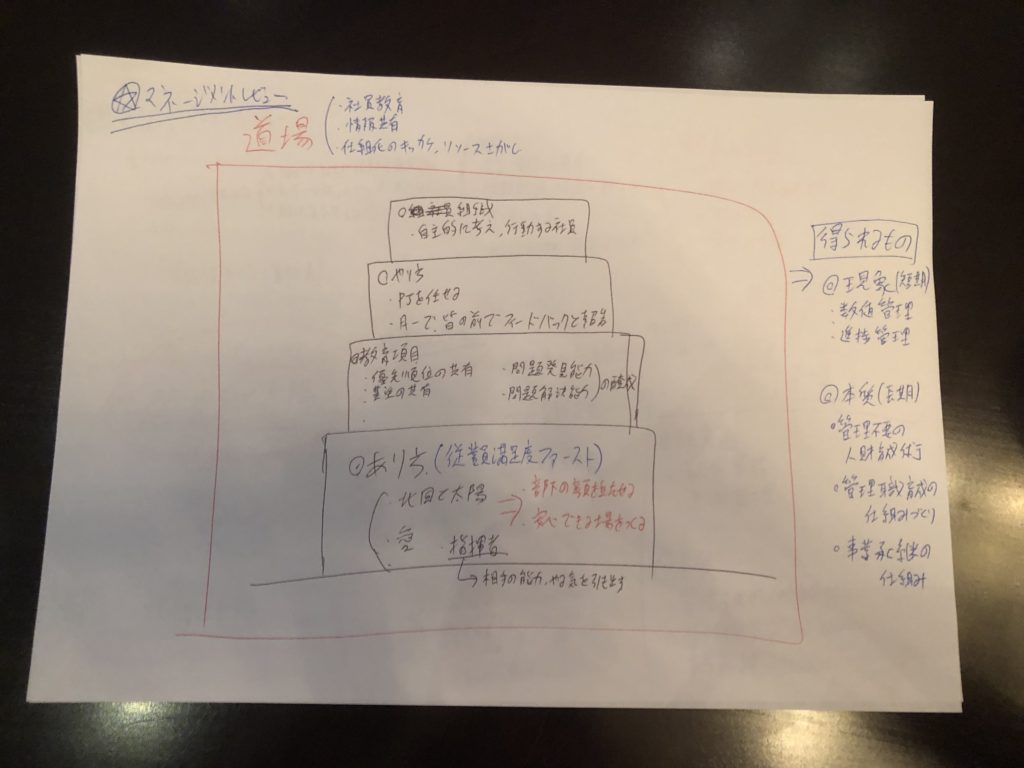 ☆マネージメントレビュー
道場
・社員教育
・情報共有
・仕組化のキッカケ,リソースさがし
組織
・自主的に考え,行動する社員
◎やり方
・PJを任せる
・月一で,皆の前でフィードバックと報告
◎教育項目
・優先順位の共有
・基準の共有
・問題発見能力
・問題解決能力
の醸成
◎あり方(従業員満足度ファースト)
・北風と太陽
・愛
・指揮者
→相手の能力,やる気を引き出す
・部下の
・安心できる場をつくる
得られるもの
◎現象(短期)
・数値管理
・進捗管理
◎本質(長期)
・管理不要の
人財育成
・管理職育成の
仕組みづくり
・事業承継の
仕組み